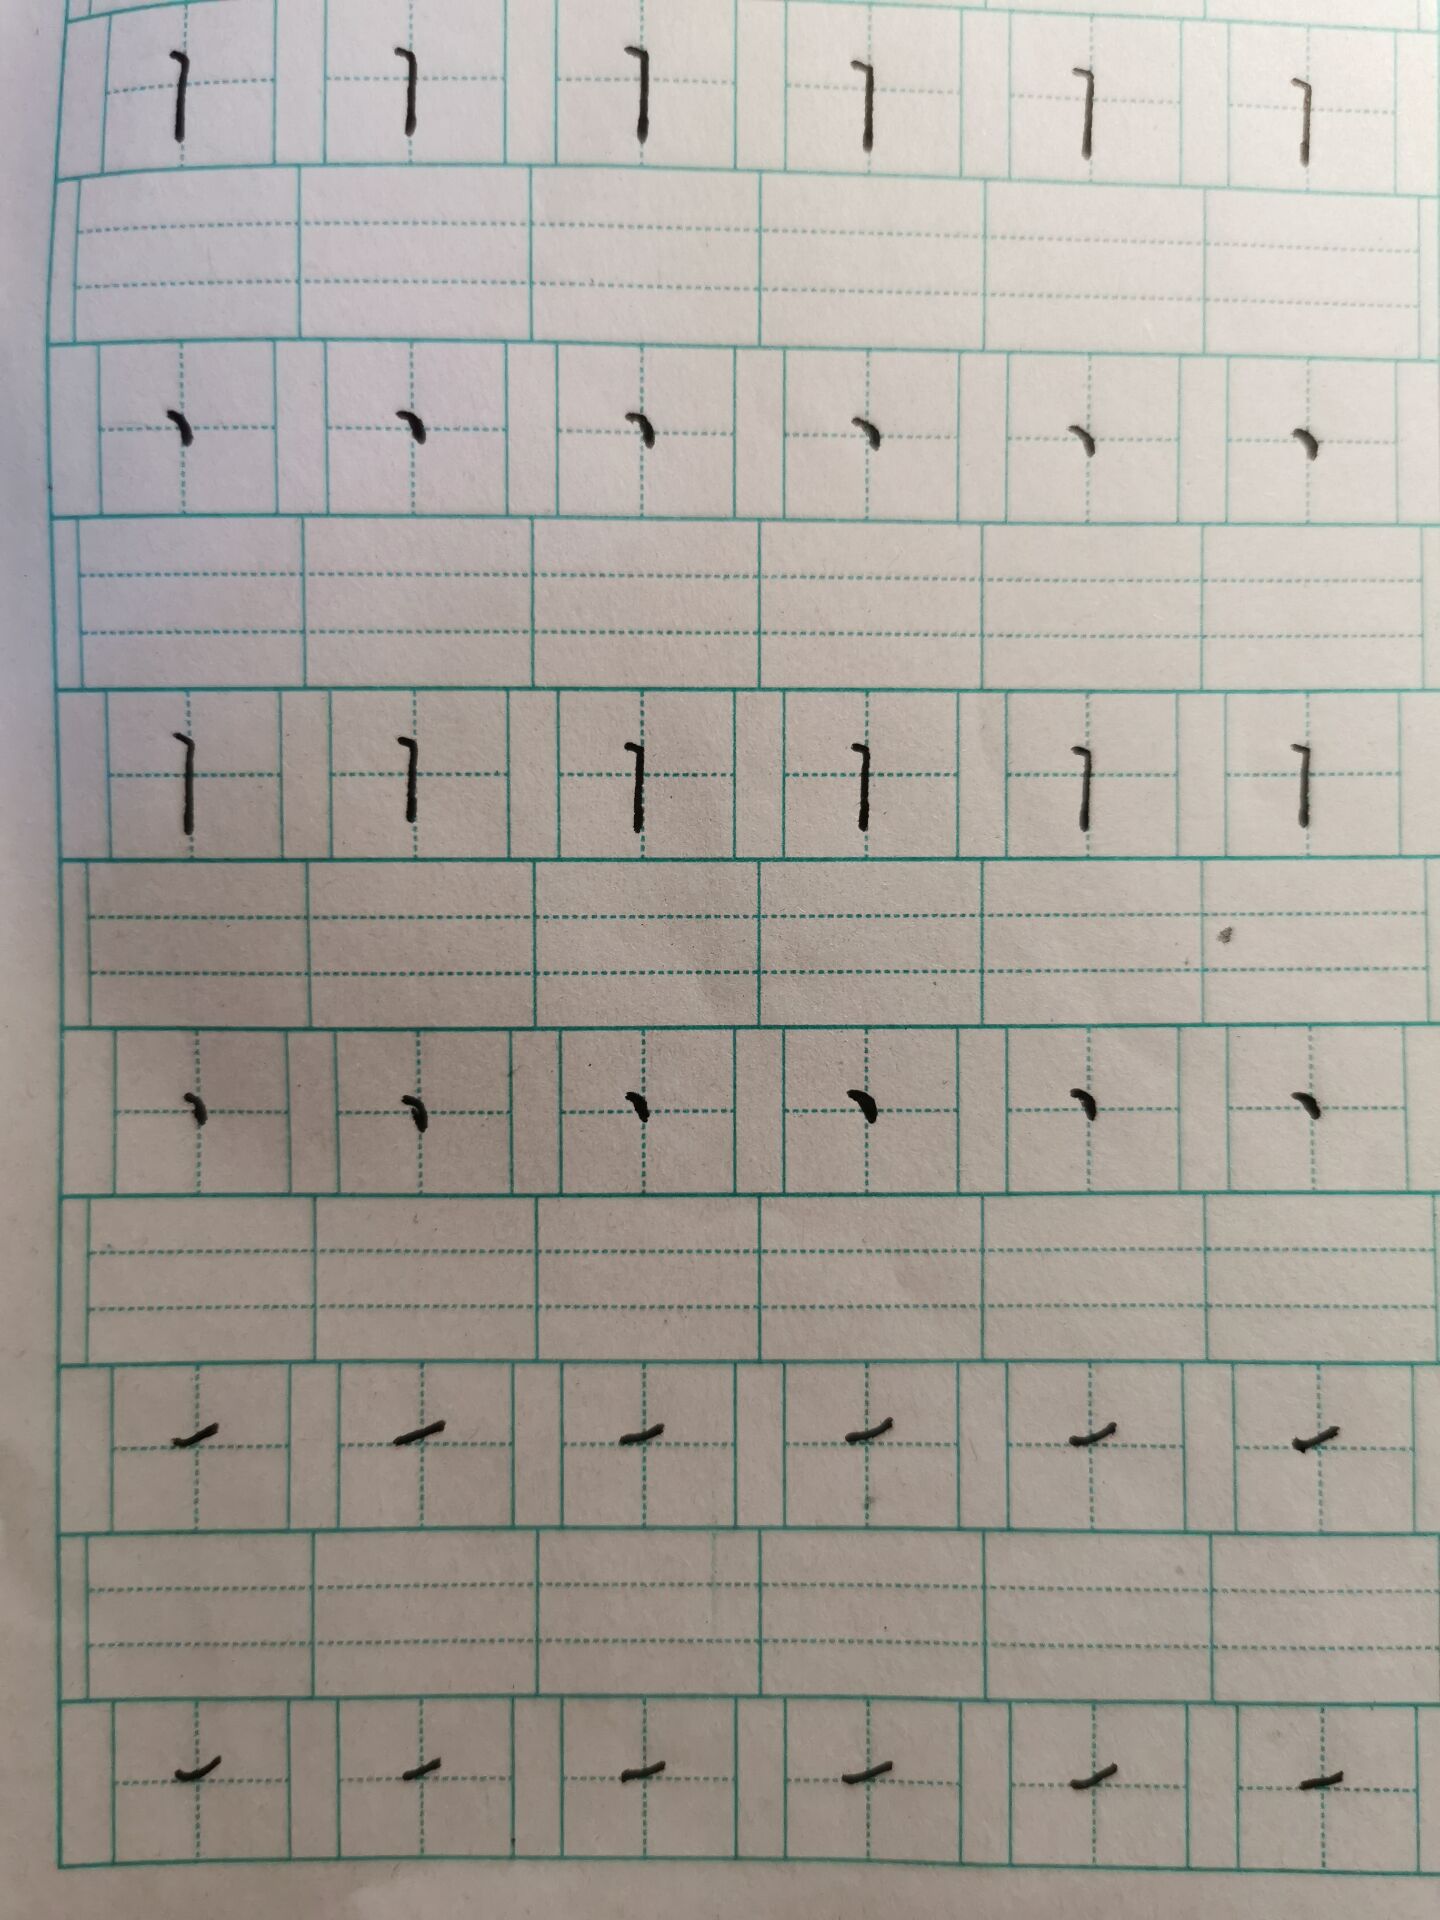 丨 丨 丨 丨 丨 丨
丶 丶 丶 丶 丶 丶
丨 丨 丨 丨 丨 丨
丶 丶 丶 丶 丶 丶
㇀ ㇀ ㇀ ㇀ ㇀ ㇀
㇀ ㇀ ㇀ ㇀ ㇀ ㇀